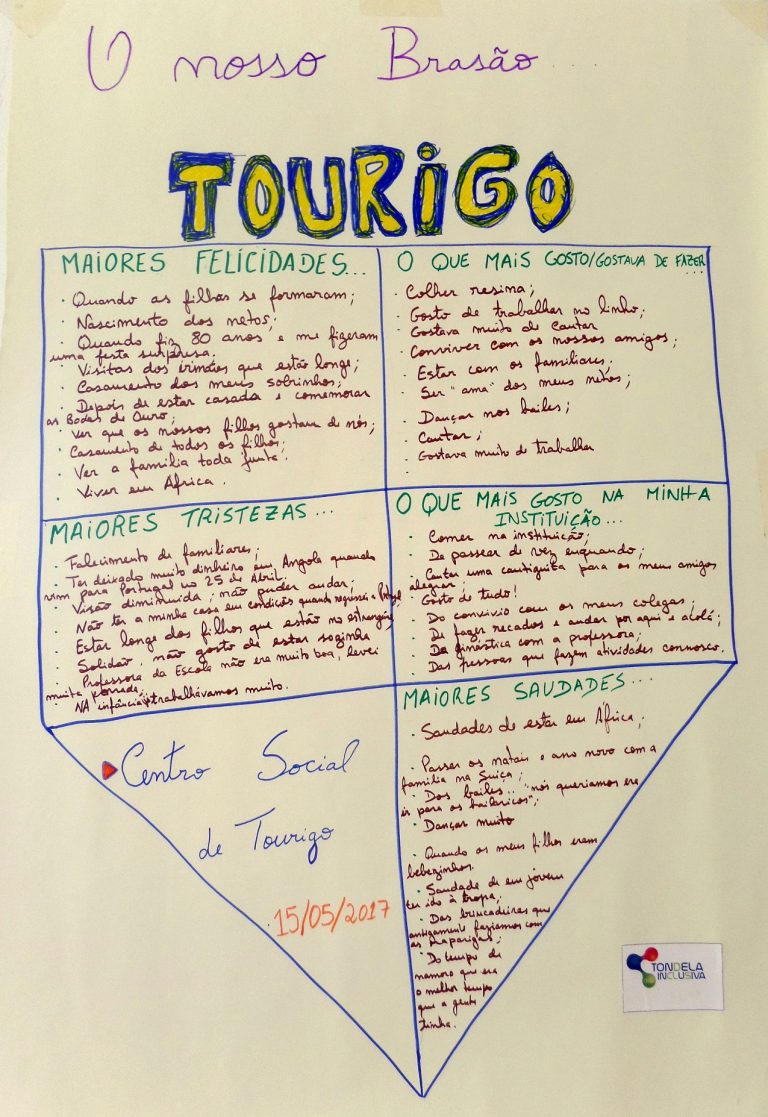 O nosso Brasão...
TOURiGO
MAIORES FELICIDADES...
· Quando as filhas se formaram;
· Nascimento dos netos;
· Quando fiz 80 anos e me fizeram
uma festa surpresa;
· Visitas dos irmãos que estão longe;
· Casamento dos meus sobrinhos;
· Depois de estar casada e comemorar
as Bodas de Ouro;
· Ver que os nossos filhos gostam de nós;
· Casamento de todos os filhos;
· Ver a família toda junta.
· Viver em Africa.
O QUE MAIS GOSTO/GOSTAVA DE FAZER...
· Colher resina;
· Gosto de trabalhar no linho;
· Gostava muito de cantar
· Conviver com os nossos amigos;
· Estar com os familiares;
· Ser "ama" dos meus netos;
· Dançar nos bailes;
· Cantar;
· Gostava muito de trabalhar
MAIORES TRISTEZAS...
· Falecimento de familiares;
· Ter deixado muito dinheiro em Angola quando
vim para Portugal no 25 de Abril.
· Visão diminuida, não puder andar;
· Não ter a minha casa em condições quando regressei a Portugal
· Estar longe dos filhos que estão no estrangeiro;
· Solidão, não gosto de estar sozinha
· Professora da Escola não era muito boa, levei
muita porrada;
· NA infância trabalhávamos muito.
O QUE MAIS GOSTO NA MINHA
INSTITUIÇÃO...
· Comer na instituição;
· De passear de vez enquando;
· Cantar uma cantiguita para os meus amigos
alegrar;
· Gosto de tudo!
· Do convivio com os meus colegas;
· De fazer recados e andar por aqui e acolá;
· Da ginástica com a professora;
· Das pessoas que fazem atividades connosco.
MAIORES SAUDADES...
· Saudades de estar em África;
· Passar os natais e ano novo com a
família na Suiça;
· Dos bailes.. "nós queriamos era
ir para os bailaricos";
· Dançar muito
· Quando os meus filhos eram
bebezinhos.
· Saudade de em jóvem
ter ido à tropa;
· Das brincadeiras que
antigamente faziamos com
as raparigas;
· Do tempo de
namoro que era
o melhor tempo
que a gente
tinha.
Centro Social
de Tourigo
15/05/2017
TONDELA
INCLUSIVA